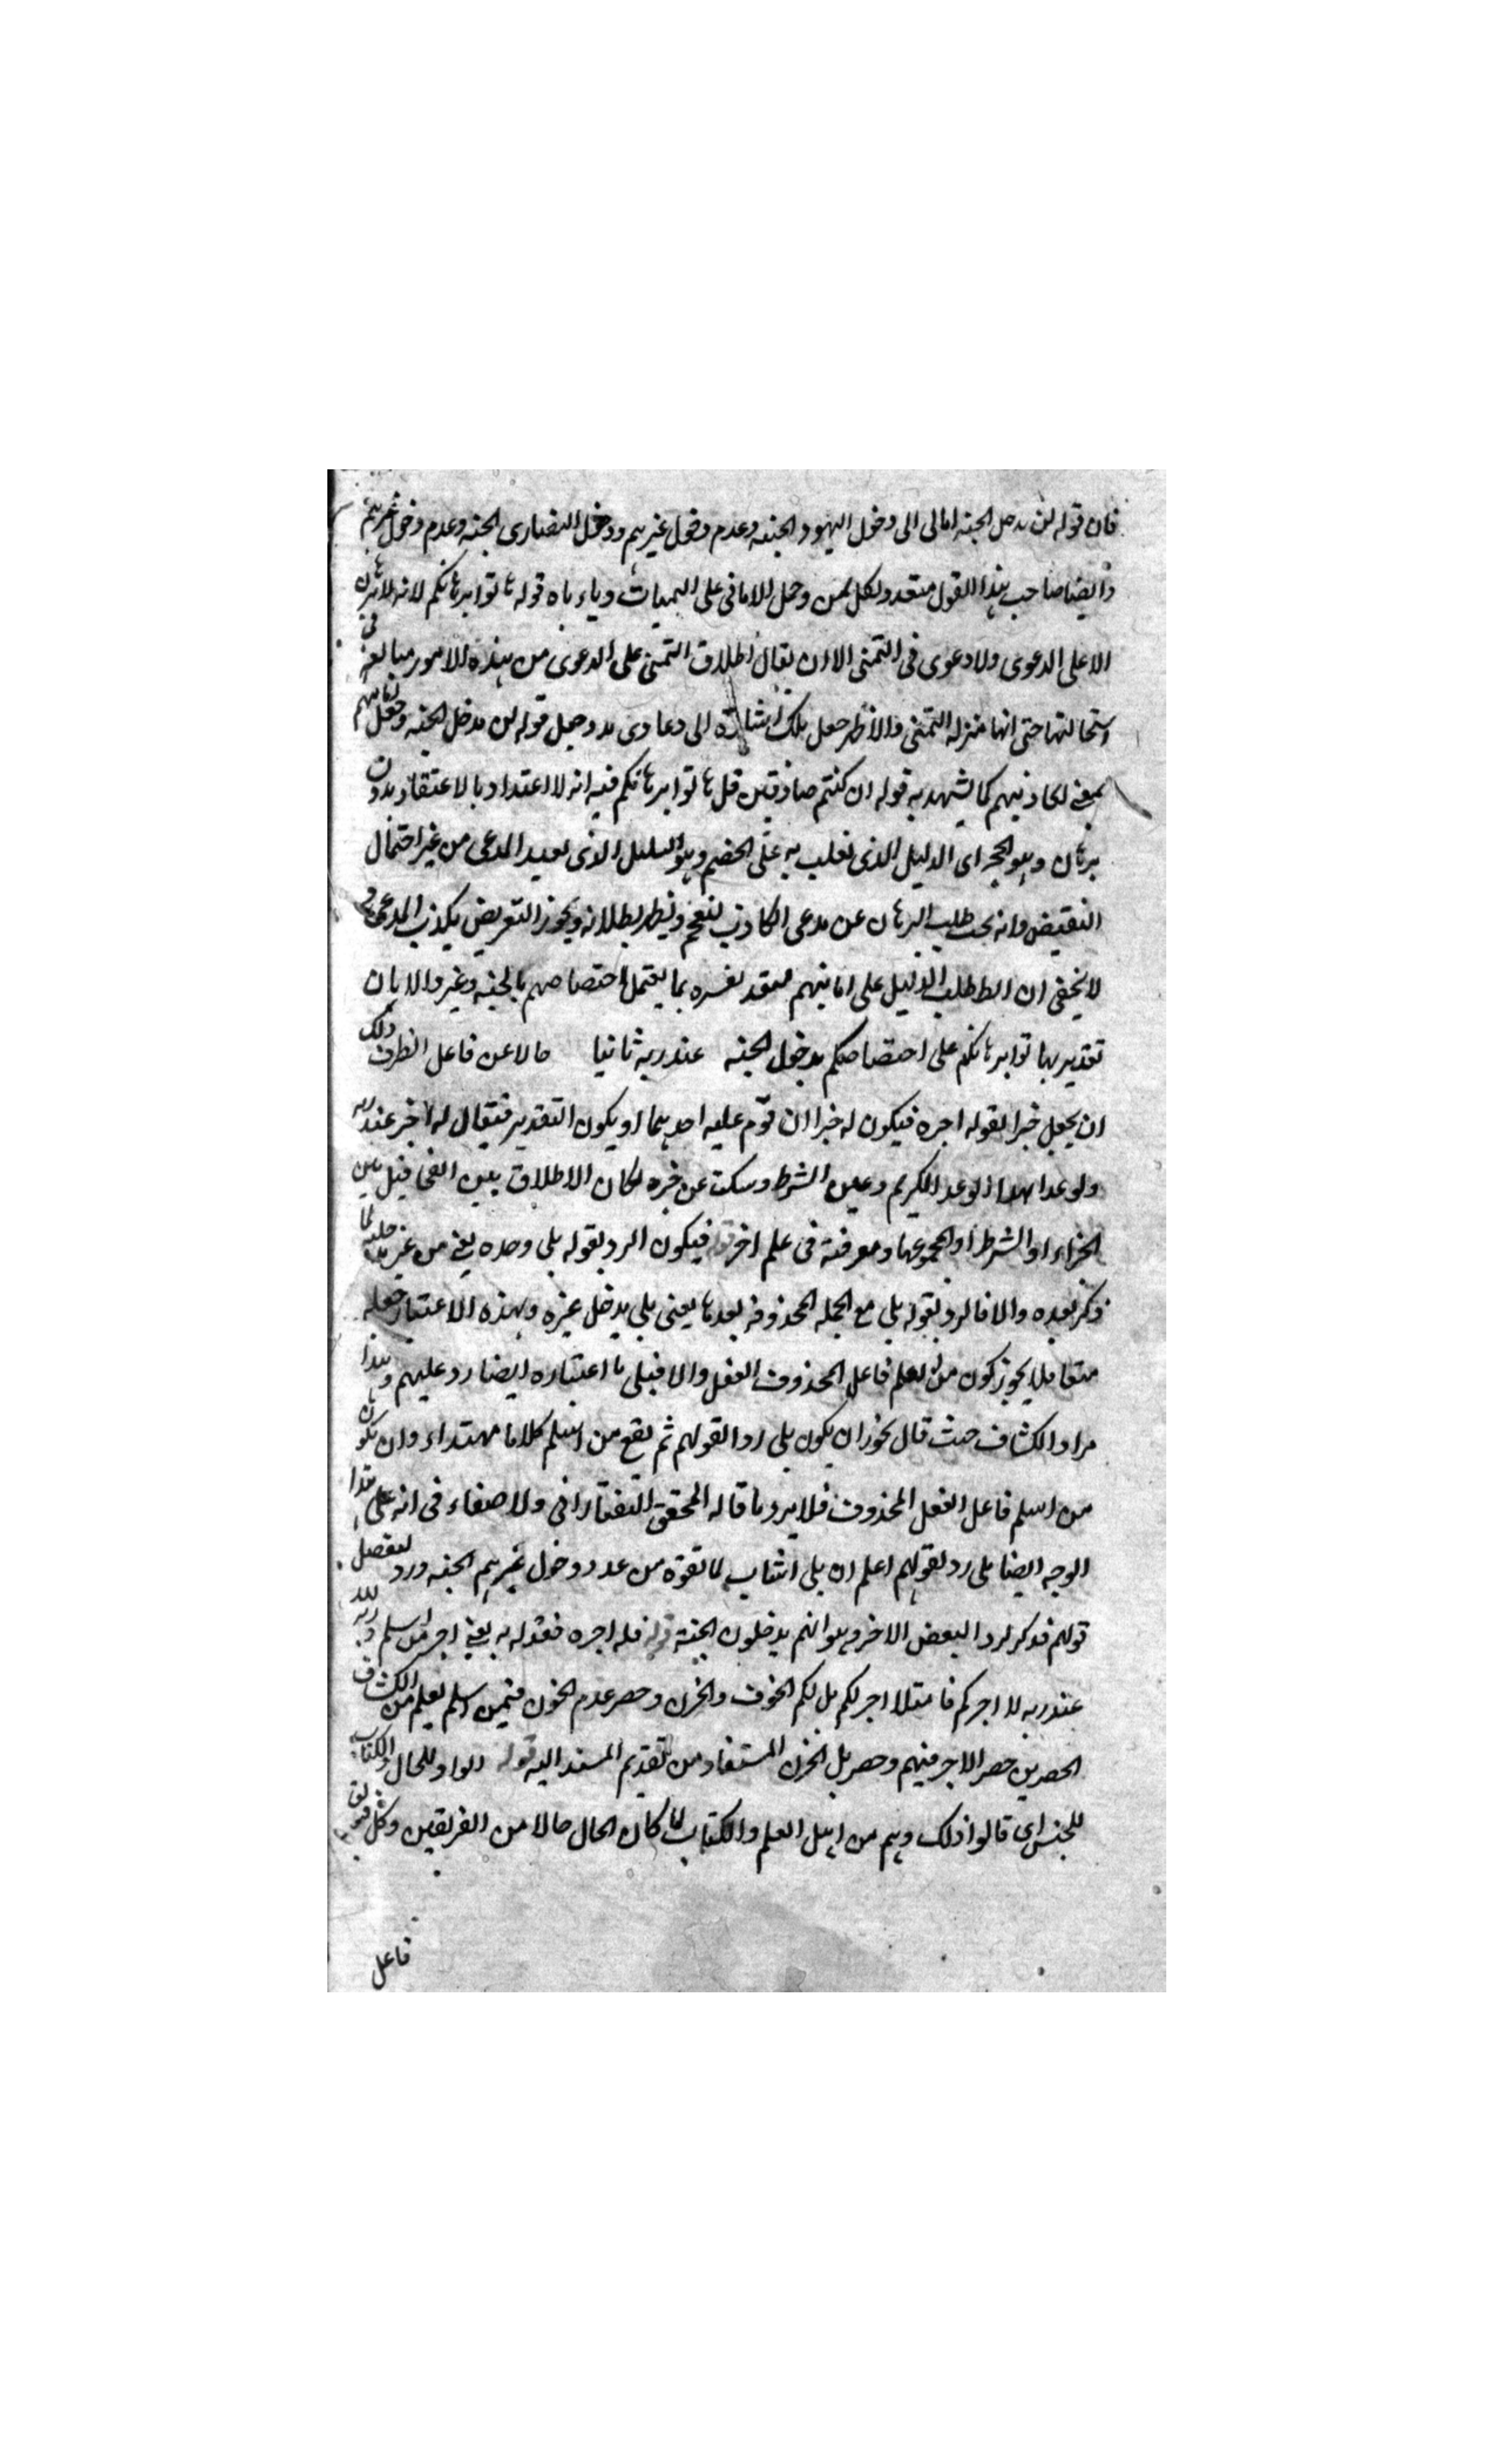 فان قوله لن يدخل الجنة امالى الى دخول اليهود الجنة وعدم دخول غيرهم ودخول النصارى الجنة وعدم دخول غيرهم
وايضا صاحب هذا القول متعدد لكل وحمل الامانى على وياباه قوله هاتوا برهانكم لانه لا برهان
الا على الدعوى ولا دعوى فى التمنى الا ان يقال اطلاق التمنى على الدعوى من هذه الامور مبالغة فى
استحالتها حتى انها منزلة التمنى والاظهر جعل تلك اشارة الى دعاوى وجعل قوله لن يدخل الجنة وجعل امانيهم
بمعنى اكاذيبهم كما يشهد به قوله ان كنتم صادقين قل هاتوا برهانكم فيه انه لا اعتداد بالاعتقاد بدون
برهان وهو الحجة اى الدليل الذى تغلب به على الخصم وهو الدليل الذى يفيد المدعى من غير احتمال
النقيض وانه يجب طلب البرهان عن مدعى الكاذب ليفحم ويظهر بطلانه ويجوز التعريض بكذب المدعى و
لا يخفى ان طلب الدليل على امانيهم بما اختصاصهم بالجنة وغيره والا بان
تقدير هاتوا برهانكم على اختصاصكم بدخول الجنة عند ربه ثانيا حالا عن فاعل الظرف ذلك
ان يجعل خبرا لقوله اجره فيكون له خبرا ان قدم عليه احدهما او يكون التقدير فيقال له اجر عند ربه
ولو عدا بهذا الوعد الكريم وعين الشرط وسكت عن خبره لكان الاطلاق بين من
الجزاء او الشرط او مجموعهما ومعرفته فى علم اخر قوله فيكون الرد بقوله بلى وحده يعنى من غير لما
ذكر بعده والا فالرد بقوله بلى مع الجملة المحذوفة بعدها يعنى بلى يدخل غيره وبهذه الاعتبار جعله
متقابلا يجوز كون من اسلم فاعل المحذوف الفعل والا فبلى باعتباره ايضا رد عليهم وهذا
مراد الكشاف حيث قال يجوز ان يكون بلى ردا لقولهم ثم يقع من اسلم كلاما مبتداء وان يكون
من اسلم فاعل الفعل المحذوف فلا يرد ما قاله المحقق التفتازانى ولا خفاء فى انه على هذا
الوجه ايضا بلى رد لقولهم اعلم ان بلى اثبات لما نفوه من عدم دخول غيرهم الجنة ورد لبعض
قولهم فذكر لرد البعض الاخر وهو انهم يدخلون الجنة قوله فله اجره فقوله به يعنى اجر من اسلم لله
عند ربه لا اجركم فانتم لا اجر لكم بل لكم الخوف والحزن وحصر عدم الحزن فيمن اسلم يعلم من الكشاف
الحصر من حصر الاجر فيهم وحصر بل الحزن المستفاد من تقديم المسند اليه قوله الواو للحال والكتاب
للجنس اى قالوا ذلك وهم من اهل العلم والكتاب لما كان الحال حالا من الفريقين وكل فريق
فاعل